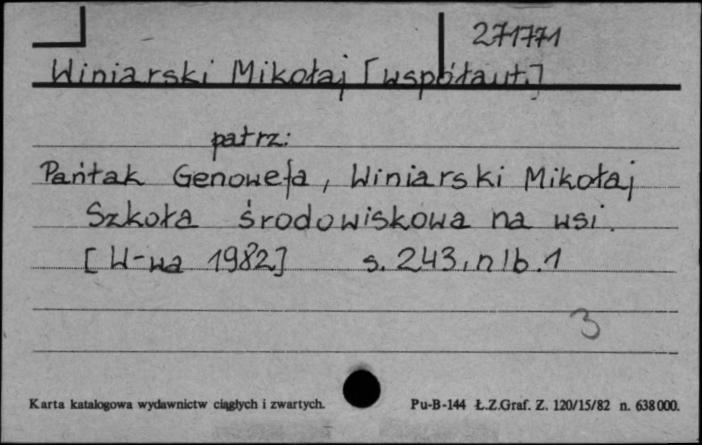 271771
Winiarski Mikołaj [współaut.]
patrz:
Pańtak Genowefa, Winiarski Mikołaj
Szkoła środowiskowa na wsi.
[W-wa 1982] s. 243, nlb. 1
3
Karta katalogowa wydawnictw ciągłych i zwartych. Pu-B-144 Ł.Z.Graf. Z. 120/15/82 n. 638000.